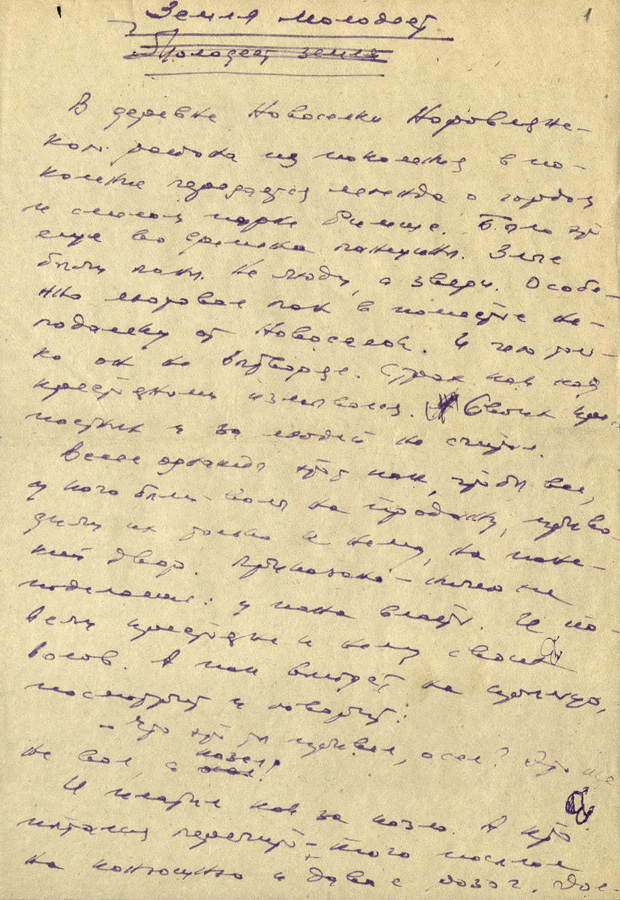 Земля молодеет
1
Молодеет земля
В деревне Новоселки Наровлянс-
ком района из поколения в по-
коление передается легенда о гордом
и смелом парне Климце. Было
еще во времена панщины. Злые
были паны. Не люди, а звери. Особе-
нно лютовал пан в поместье не-
подалеку от Новоселок. И чего толь-
ко он не вытворял. Страх как над
крестьянами измывался. Своих кре-
постных и за людей не считал.
Велел однажды пан, чтобы все,
у кого были волы на продажу, приво-
дили их только к нему, на панс-
кий двор. Приказано – ничего не
поделаешь: у пана власть. И по-
вели крестьяне к нему своих
волов. А пан выйдет на крыльцо,
посмотрит и говорит:
– Что ты привел, осел? Это же
не вол, а козел!
И платил как за козла. А кто
пытался перечить – того посылал
на конюшню и давал розог.